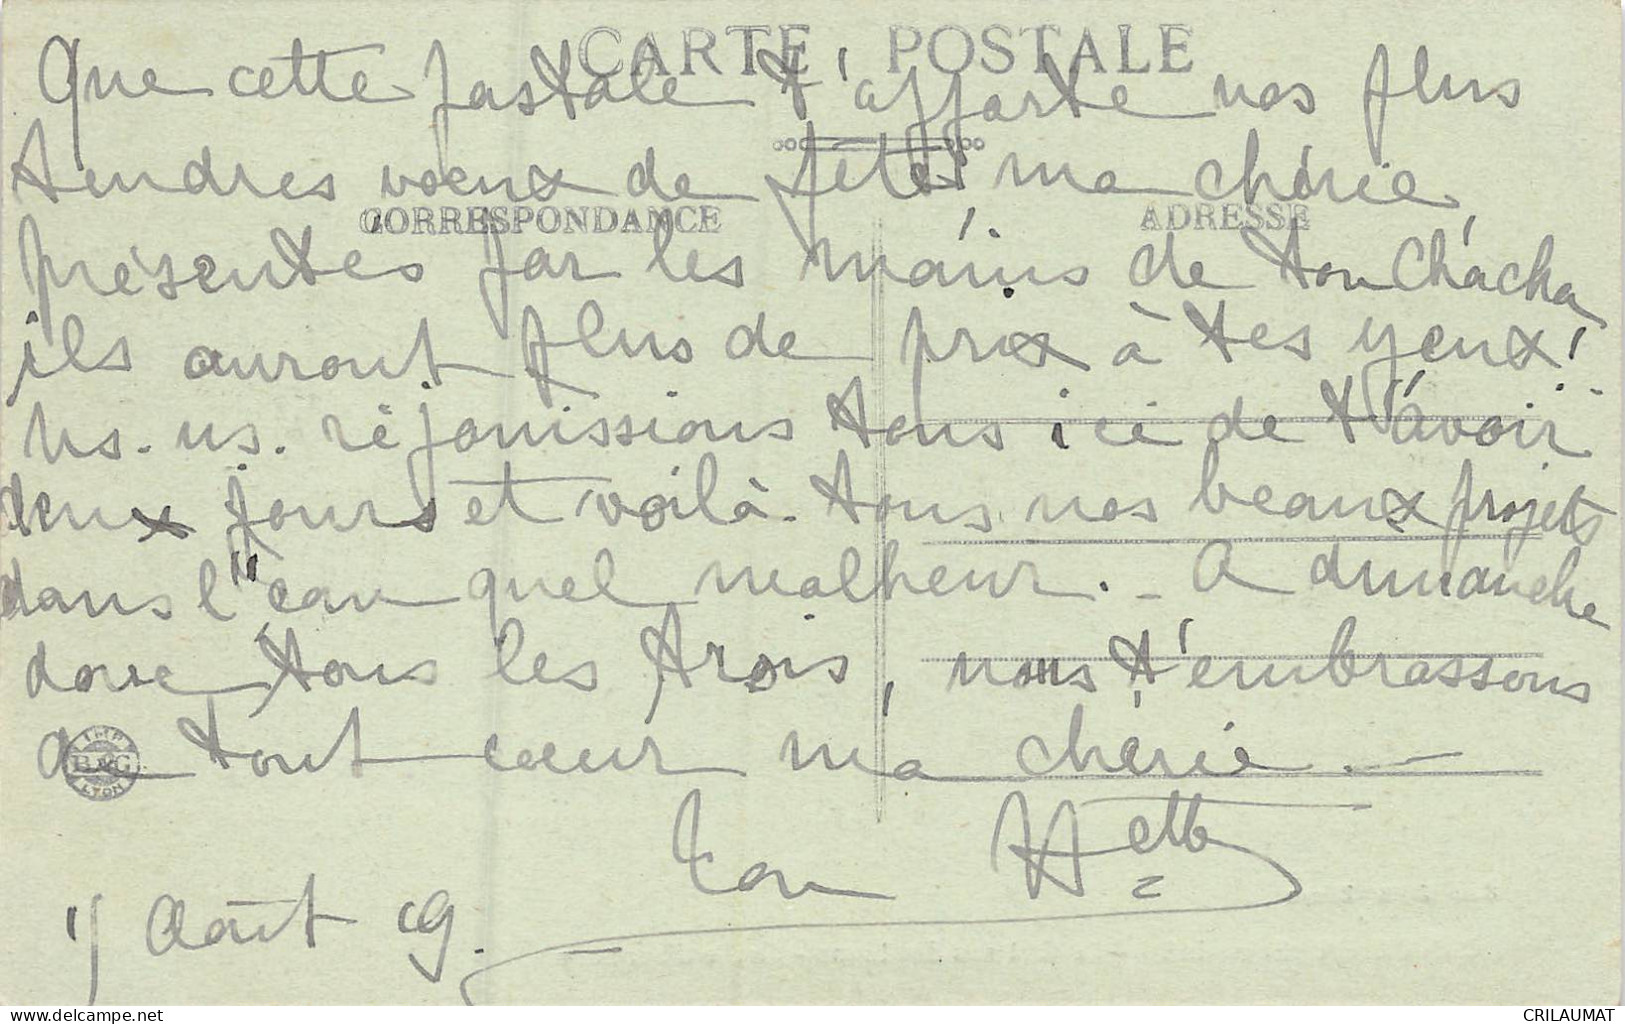 CARTE POSTALE
Que cette postale t'apporte nos plus
tendres voeux de fête, ma chérie,
CORRESPONDANCE
ADRESSE
présentés par les mains de ton Chacha
ils auront plus de prix à tes yeux!
Ns. ns. réjouissions tous ici de t'avoir
deux jours et voilà tous nos beaux projets
dans l'eau quel malheur. - A dimanche
donc tous les trois, nous t'embrassons
de tout coeur ma chérie. -
IMP. B & G LYON
Ton
Août 19.
delcampe.net
CRILAUMAT